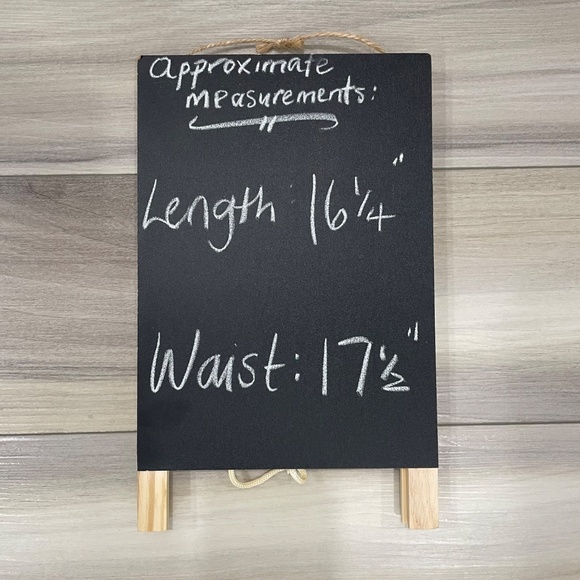 Approximate
measurements:
Length: 16 1/4"
Waist: 17 1/2"